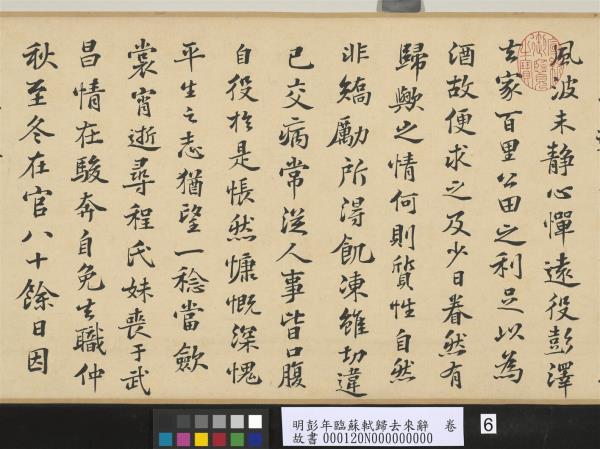 風波未靜心憚遠役彭澤
去家百里公田之利足以為
酒故便求之及少日眷然有
歸歟之情何則質性自然
非矯勵所得飢凍雖切違
已交病常從人事皆口腹
自役於是悵然慷慨深愧
平生之志猶望一稔當歛
裳宵逝尋程氏妹喪于武
昌情在駿奔自免去職仲
秋至冬在官八十餘日因
明彭年臨蘇軾歸去來辭 卷
故書000120N000000000
6